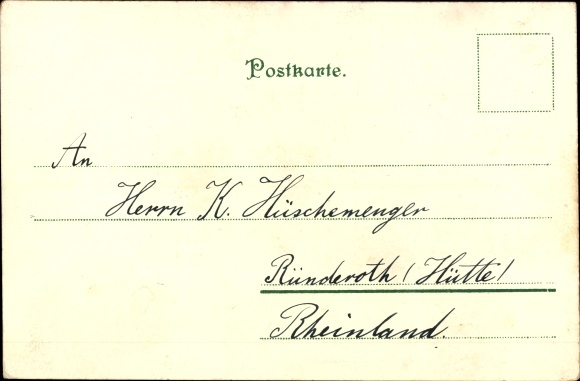 Postkarte.
An
Herrn K. Hüschemenger
Ründeroth (Hütte)
Rheinland.